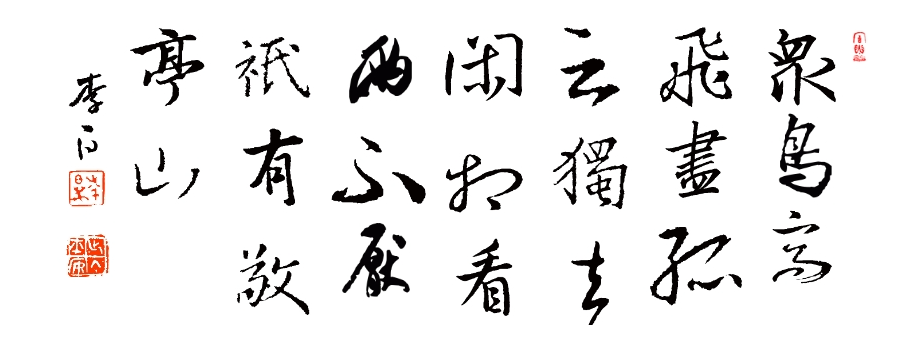 衆鳥高
飛盡孤
云獨去
閑相看
兩不厭
祇有敬
亭山
李白